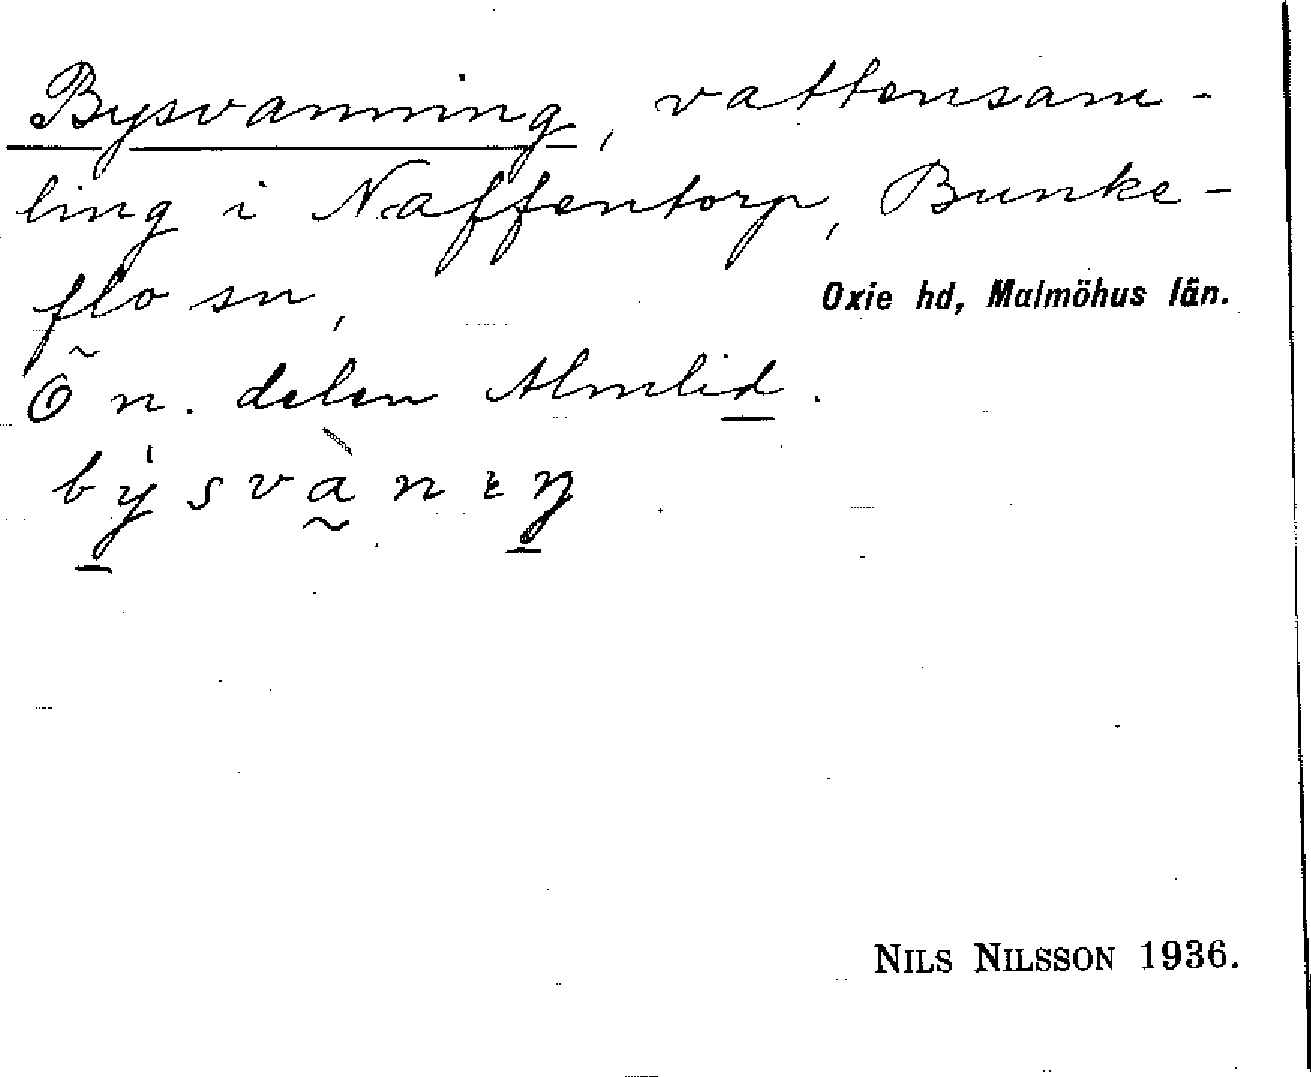 Bysvanning, vattensam-
ling i Naffentorp, Bunke-
flo sn, Oxie hd, Malmöhus län.
Õ n. delen Almlid.
býsvànıŋ
NILS NILSSON 1936.